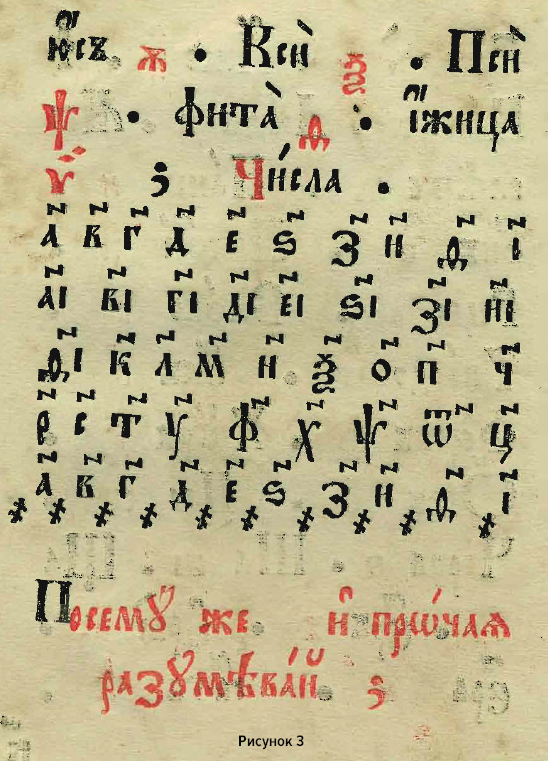 ю҆́съ ѫ • Ксѝ ѯ • Псѝ
ѱ • фита̀ ѳ • і҆́жица
ѵ ; Чи́сла •
а҃ в҃ г҃ д҃ е҃ ѕ҃ з҃ и҃ ѳ҃ і҃
аі҃ ві҃ гі҃ ді҃ еі҃ ѕі҃ зі҃ иі҃
ѳі҃ к҃ л҃ м҃ н҃ ѯ҃ о҃ п҃ ч҃
р҃ с҃ т҃ у҃ ф҃ х҃ ѱ҃ ѿ҃ ц҃
а҃ в҃ г҃ д҃ е҃ ѕ҃ з҃ и҃ ѳ҃ і҃
҂ ҂ ҂ ҂ ҂ ҂ ҂ ҂ ҂
Посемꙋ̀ же и҆ прѡ́чаѧ
разꙋмѣва́й ;
Рисунок 3